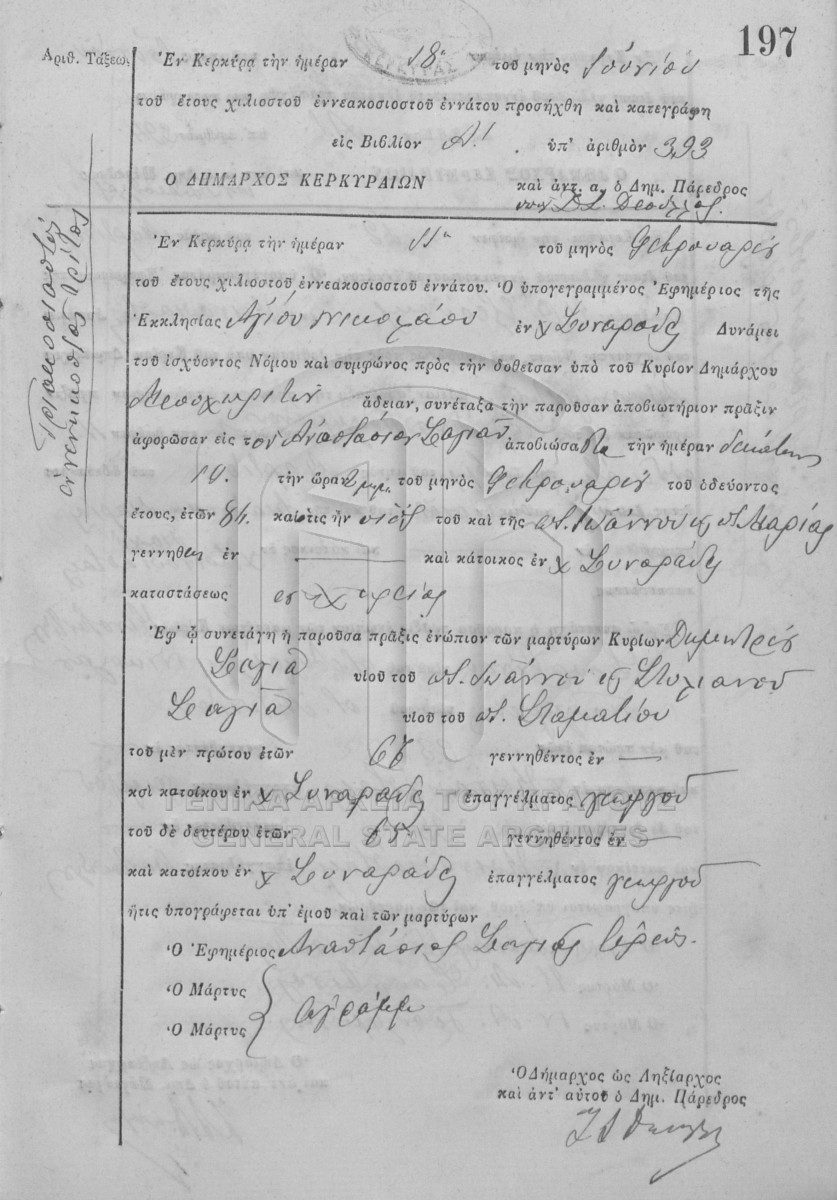 197
Ἀριθ. Τάξεως
Ἐν Κερκύρᾳ τὴν ἡμέραν 18ῃ τοῦ μηνὸς Ἰουνίου
τοῦ ἔτους χιλιοστοῦ ἐννεακοσιοστοῦ ἐννάτου προσήχθη καὶ κατεγράφη
εἰς Βιβλίον Α! ὑπ' ἀριθμὸν 393
Ο ΔΗΜΑΡΧΟΣ ΚΕΡΚΥΡΑΙΩΝ καὶ ἀντ. α. ὁ Δημ. Πάρεδρος
τριακοσιοστὸς
ἐννενηκοστὸς τρίτος
Ἐν Κερκύρᾳ τὴν ἡμέραν 11ῃ τοῦ μηνὸς Φεβρουαρίου
τοῦ ἔτους χιλιοστοῦ ἐννεακοσιοστοῦ ἐννάτου. Ὁ ὑπογεγραμμένος Ἐφημέριος τῆς
Ἐκκλησίας Ἁγίου Νικολάου ἐν χ Συναράδες Δυνάμει
τοῦ ἰσχύοντος Νόμου καὶ συμφώνως πρὸς τὴν δοθεῖσαν ὑπὸ τοῦ Κυρίου Δημάρχου
Μεσοχωριτῶν ἄδειαν, συνέταξα τὴν παροῦσαν ἀποβιωτήριον πρᾶξιν
ἀφορῶσαν εἰς τὸν Ἀναστάσιον Σαγιᾶν ἀποβιώσαντα τὴν ἡμέραν δεκάτην
10. τὴν ὥραν 2 μ.μ. τοῦ μηνὸς Φεβρουαρίου τοῦ ὁδεύοντος
ἔτους, ἐτῶν 84. καὶ τις ἦν υἱὸς τοῦ καὶ τῆς ποτ. Ἰωάννου καὶ ποτ. Μαρίας
γεννηθεὶς ἐν — καὶ κάτοικος ἐν χ Συναράδες
καταστάσεως εὐχερείας
Ἐφ' ᾧ συνετάγη ἡ παροῦσα πρᾶξις ἐνώπιον τῶν μαρτύρων Κυρίων Δημητρίου
Σαγιᾶ υἱοῦ τοῦ ποτ. Ἰωάννου καὶ Στυλιανοῦ
Σαγιᾶ υἱοῦ τοῦ ποτ. Σταματίου
τοῦ μὲν πρώτου ἐτῶν γεννηθέντος ἐν —
καὶ κατοίκου ἐν χ Συναράδες ἐπαγγέλματος γεωργοῦ
ΓΕΝΙΚΑ ΑΡΧΕΙΑ ΤΟΥ ΚΡΑΤΟΥΣ
τοῦ δὲ δευτέρου ἐτῶν γεννηθέντος ἐν —
GENERAL STATE ARCHIVES
καὶ κατοίκου ἐν χ Συναράδες ἐπαγγέλματος γεωργοῦ
ἥτις ὑπογράφεται ὑπ' ἐμοῦ καὶ τῶν μαρτύρων
Ὁ Ἐφημέριος Ἀναστάσιος Σαγιᾶς ἱερεύς.
Ὁ Μάρτυς
ἀγράμμ
Ὁ Μάρτυς
Ὁ Δήμαρχος ὡς Ληξίαρχος
καὶ ἀντ' αὐτοῦ ὁ Δημ. Πάρεδρος